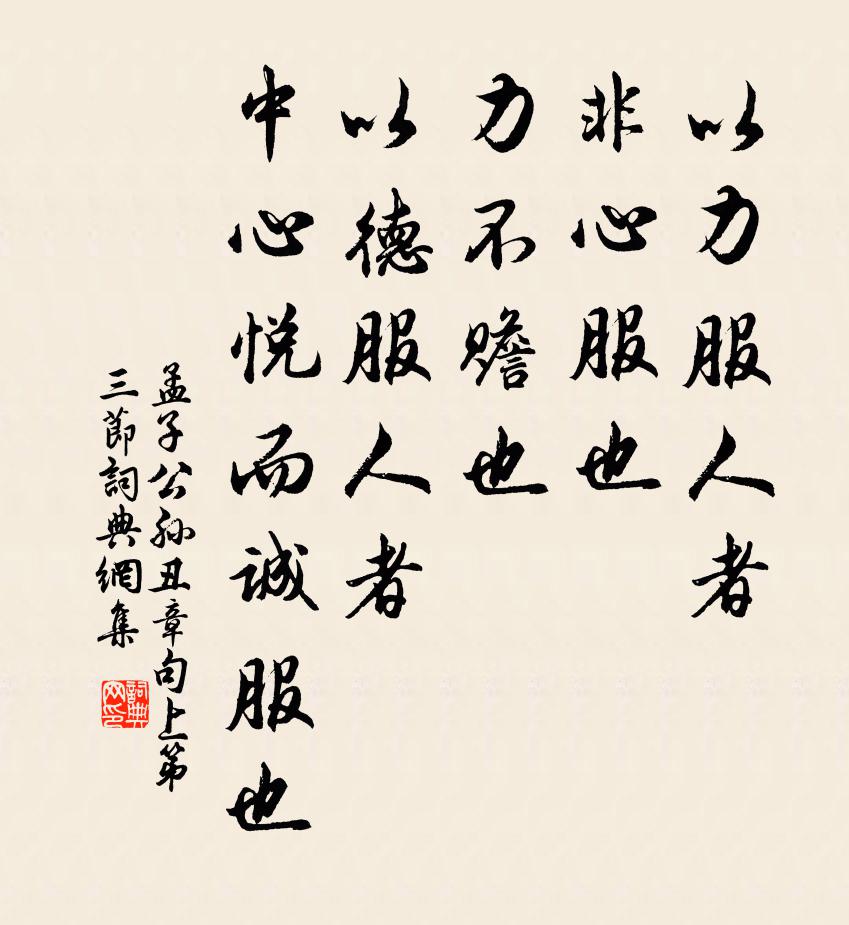 以力服人者
非心服也
力不贍也
以德服人者
中心悅而誠服也
孟子公孫丑章句上第
三節詞典網集
詞典
网印